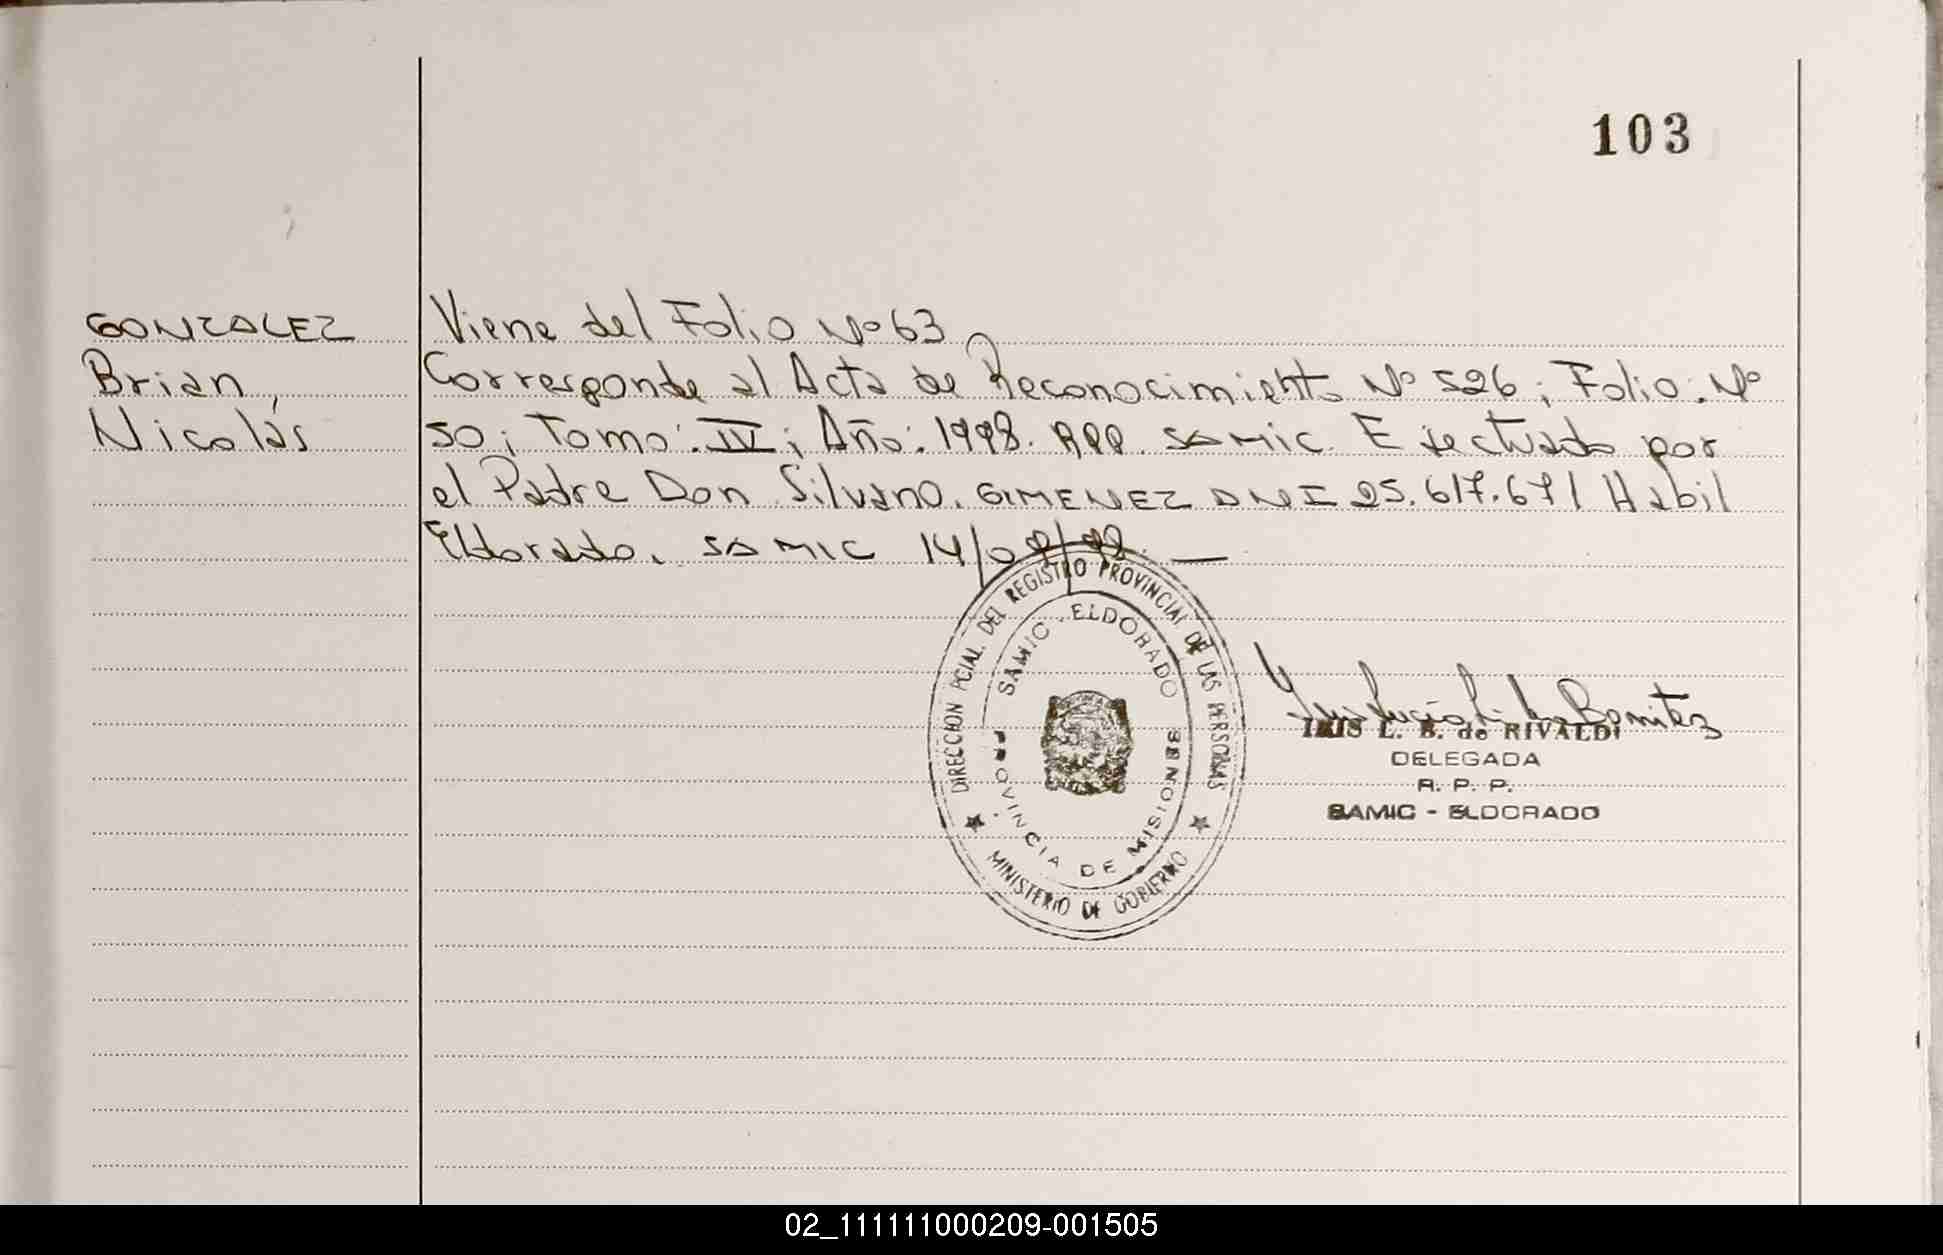 103
GONZALEZ
Brian,
Nicolás
Viene del Folio Nº 63
Corresponde al Acta de Reconocimiento Nº 526; Folio: Nº
50; Tomo: IV; Año: 1998. RPP. SAMIC. Efectuado por
el Padre Don Silvano. GIMENEZ DNI 25.617.671 Habil
Eldorado. SAMIC 14/09/98. —
DIRECCION PCIAL. DEL REGISTRO PROVINCIAL DE LAS PERSONAS
SAMIC - ELDORADO
PROVINCIA DE MISIONES
MINISTERIO DE GOBIERNO
Benitez
IRIS L. B. de RIVALDI
DELEGADA
R. P. P.
SAMIC - ELDORADO
02_111111000209-001505